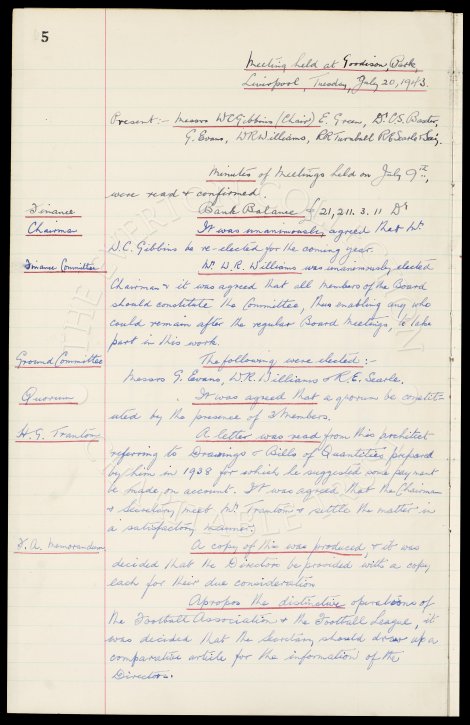 5
Meeting held at Goodison Park,
Liverpool, Tuesday, July 20, 1943.
Present:- Messrs W.C. Gibbins (Chair) E. Green, Dr. C.S. Baxter,
G. Evans, W.R. Williams, R.R. Turnbull R.E. Searle Sec.
Minutes of Meetings held on July 9th,
were read & confirmed.
Finance Bank Balance £21,211. 3. 11 Dr
Chairman It was unanimously agreed that Mr
W.C. Gibbins be re-elected for the coming year.
Finance Committee Mr. W.R. Williams was unanimously elected
Chairman & it was agreed that all members of the Board
should constitute the Committee, thus enabling any who
could remain after the regular Board Meetings, to take
part in this work.
Ground Committee The following were elected:-
Messrs G. Evans, W.R. Williams & R.E. Searle.
Quorum It was agreed that a quorum be constit-
uted by the presence of 3 Members.
H.G. Trantom A letter was read from this architect
referring to Drawings & Bills of Quantities prepared
by him in 1938 for which he suggested some payment
be made on account. It was agreed that the Chairman
& Secretary meet Mr. Trantom & settle the matter in
a satisfactory manner.
F.A. Memorandum A copy of this was produced, & it was
decided that the Directors be provided with a copy
each for their due consideration
Apropos the distinctive operations of
the Football Association & the Football League, it
was decided that the Secretary should draw up a
comparative article for the information of the
Directors.